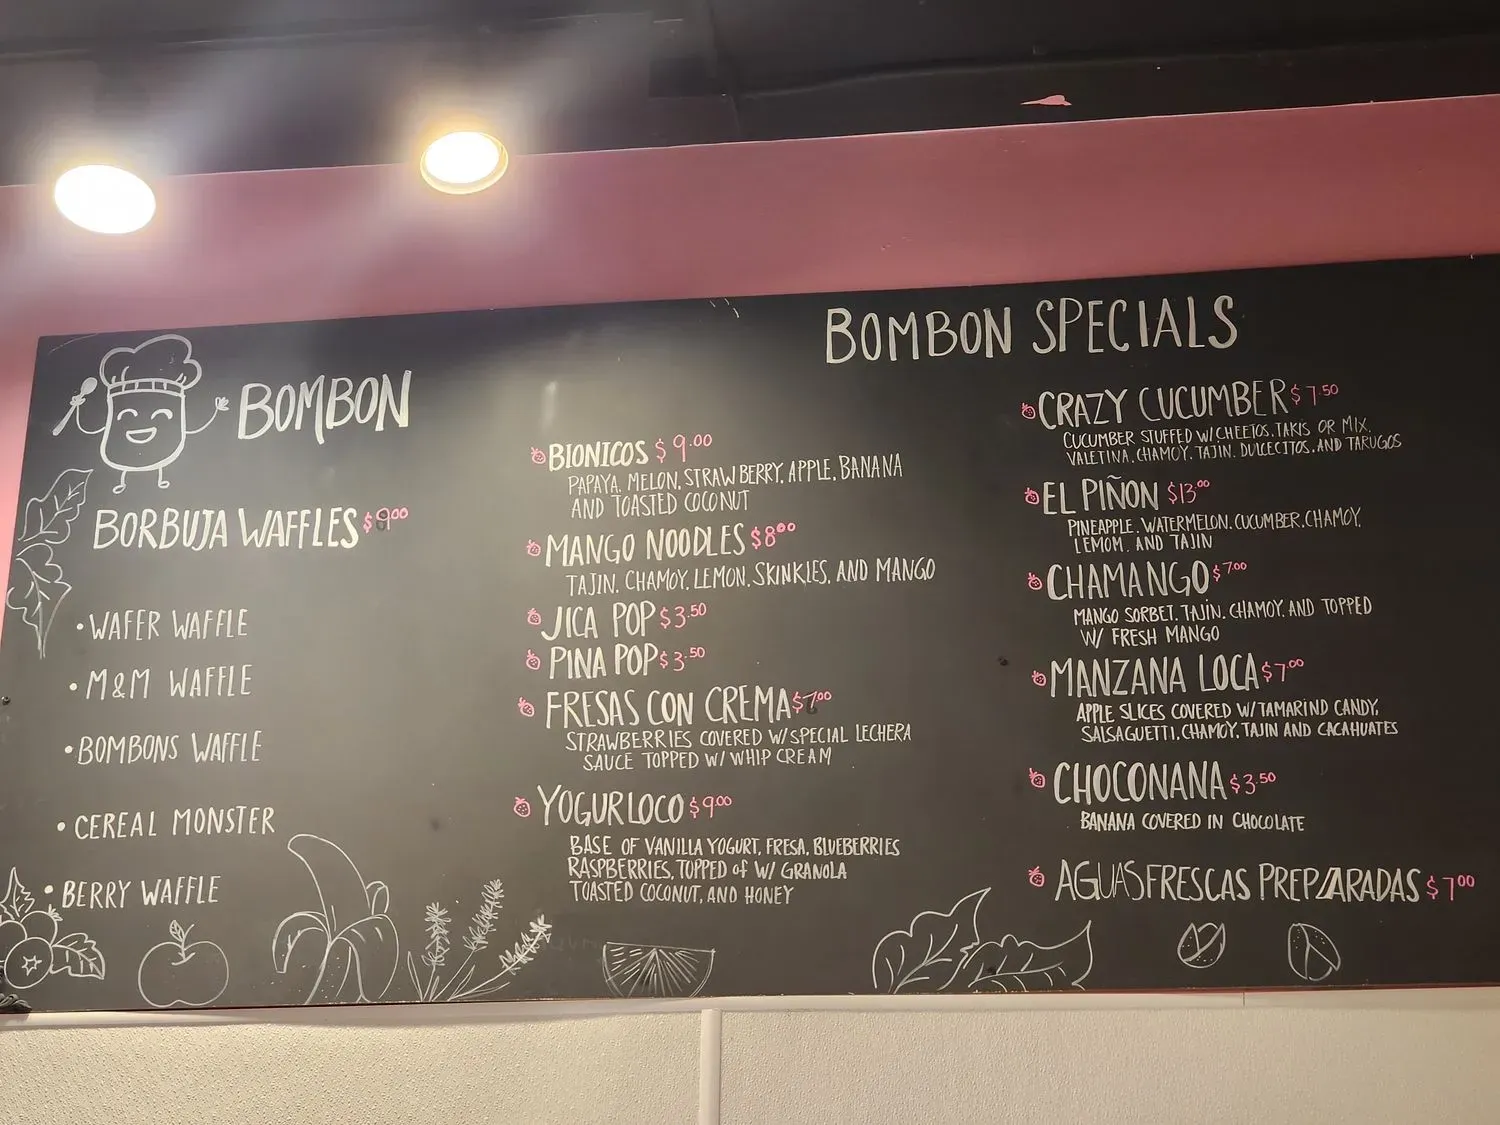 BOMBON
BORBUJA WAFFLES $9.00
• WAFER WAFFLE
• M&M WAFFLE
• BOMBONS WAFFLE
• CEREAL MONSTER
• BERRY WAFFLE
BOMBON SPECIALS
BIONICOS $9.00
PAPAYA, MELON, STRAWBERRY, APPLE, BANANA
AND TOASTED COCONUT
MANGO NOODLES $8.00
TAJIN, CHAMOY, LEMON, SKINKLES, AND MANGO
JICA POP $3.50
PINA POP $3.50
FRESAS CON CREMA $7.00
STRAWBERRIES COVERED W/SPECIAL LECHERA
SAUCE TOPPED W/ WHIP CREAM
YOGURLOCO $9.00
BASE OF VANILLA YOGURT, FRESA, BLUEBERRIES
RASPBERRIES, TOPPED of W/ GRANOLA
TOASTED COCONUT, AND HONEY
CRAZY CUCUMBER $7.50
CUCUMBER STUFFED W/CHEETOS, TAKIS OR MIX,
VALETINA, CHAMOY, TAJIN, DULCECITOS, AND TARUGOS
EL PIÑON $13.00
PINEAPPLE, WATERMELON, CUCUMBER, CHAMOY,
LEMOM, AND TAJIN
CHAMANGO $7.00
MANGO SORBET, TAJIN, CHAMOY, AND TOPPED
W/ FRESH MANGO
MANZANA LOCA $7.00
APPLE SLICES COVERED W/TAMARIND CANDY,
SALSAGUETTI, CHAMOY, TAJIN AND CACAHUATES
CHOCONANA $3.50
BANANA COVERED IN CHOCOLATE
AGUAS FRESCAS PREPARADAS $7.00